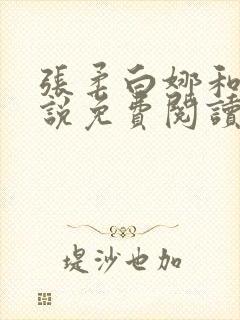 張柔白娜和
說免費閱讀
堤沙也加